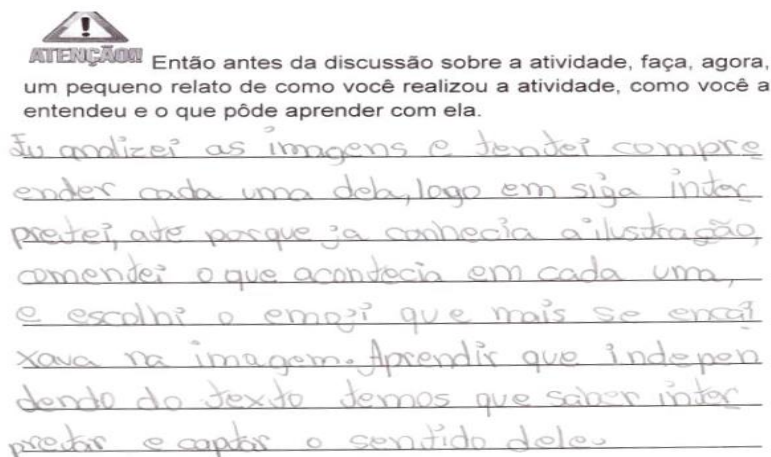 ATENÇÃO!! Então antes da discussão sobre a atividade, faça, agora,
um pequeno relato de como você realizou a atividade, como você a
entendeu e o que pôde aprender com ela.
Eu analizei as imagens e tentei compre
ender cada uma dela, logo em siga inter
pretei, até porque ja conhecia a ilustração,
comentei o que acontecia em cada uma,
e escolhi o emoji que mais se encai
xava na imagem. Aprendir que indepen
dendo do texto temos que saber inter
pretar e captar o sentido dele.